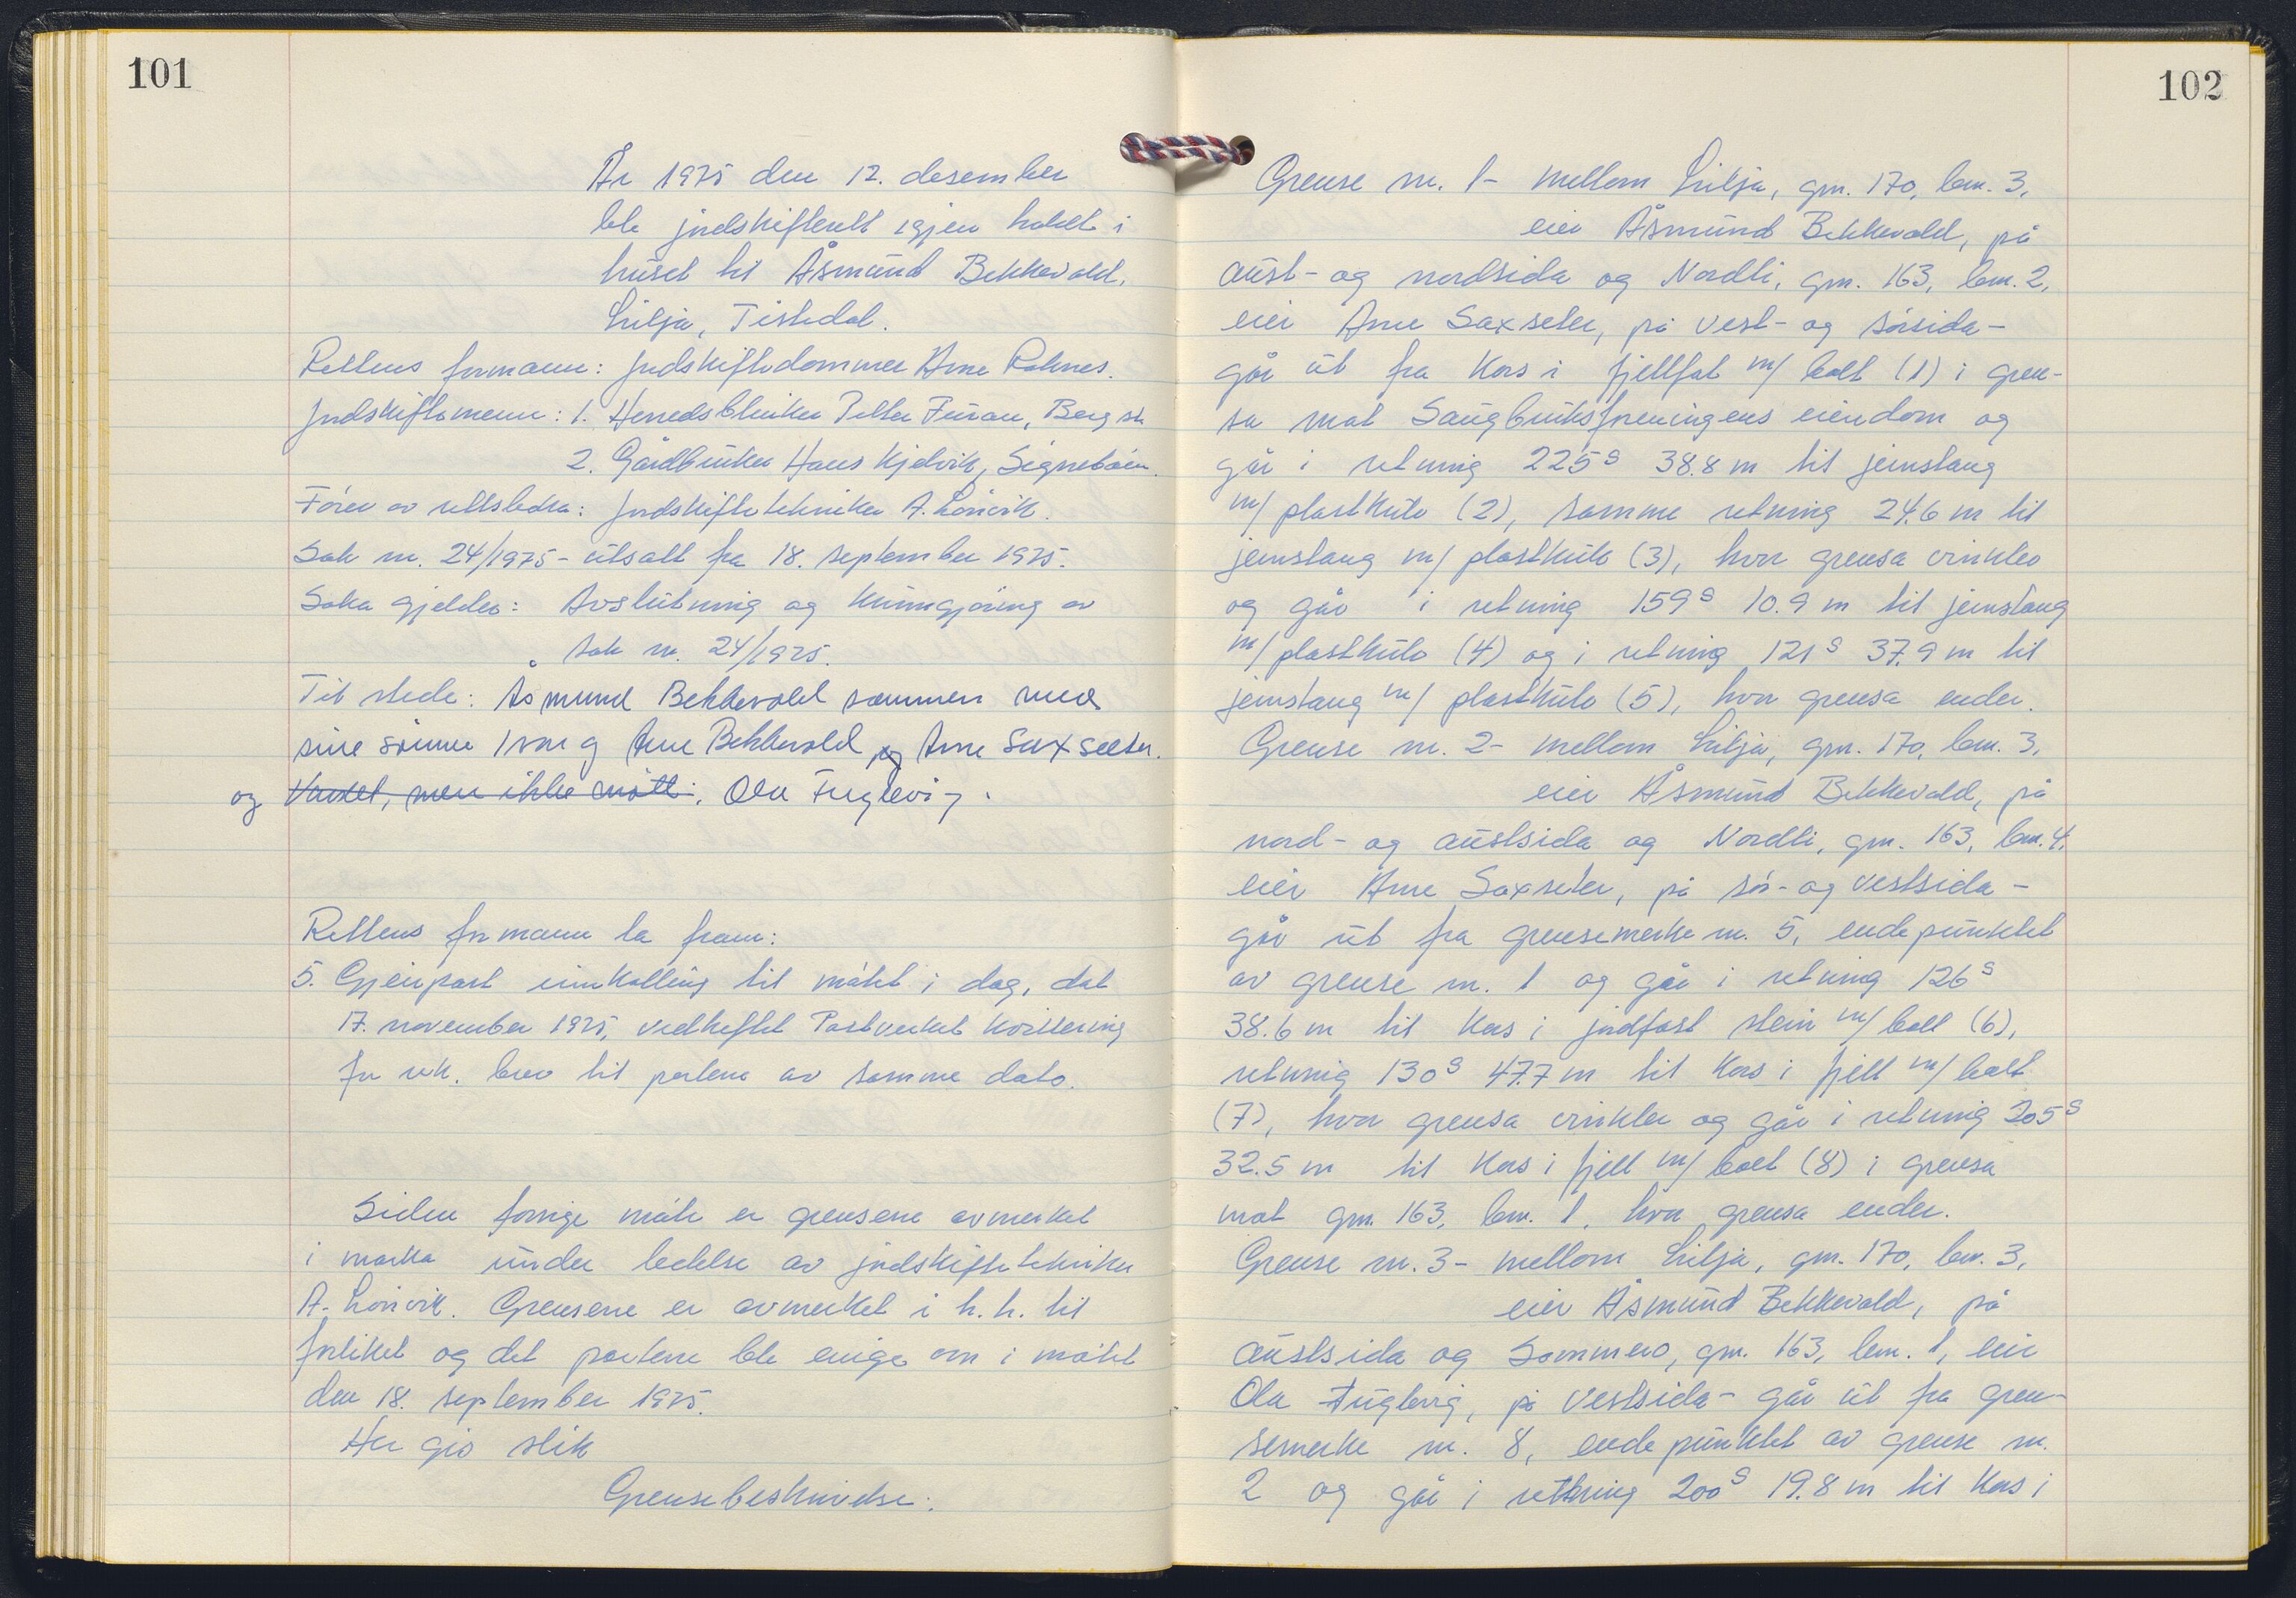 101
År 1975 den 12. desember
ble jordskifterett igjen holdt i
huset til Åsmund Bekkevold,
Lilja, Tistedal.
Rettens formann: Jordskiftedommer Arne Rolnes.
Jordskiftemenn: 1. Herredsbruker Petter Furan, Berg st.
2. Gårdbruker Hans Kjølvik, Signebøen.
Fører av rettsboka: Jordskiftetekniker A. Lönvik.
Sak nr. 24/1975 - utsatt fra 18. september 1975.
Saka gjelder: Avslutning og kunngjøring av
sak nr. 24/1975.
Til stede: Åsmund Bekkevold sammen med
sine sønner Ivar og Arne Bekkevold og Arne Saxseter.
og Varslet, men ikke møtt: Ola Fuglevig.
Rettens formann la fram:
5. Gjenpart innkalling til møtet i dag, dat
17. november 1975, vedheftet Postverket kvittering
for rek. brev til partene av samme dato.
Siden forrige møte er grensene avmerket
i marka under ledelse av jordskiftetekniker
A. Lönvik. Grensene er avmerket i h.h. til
forliket og det partene ble enige om i møtet
den 18. september 1975.
Her gis slik
Grensebeskrivelse:
102
Grense nr. 1 - mellom Lilja, gnr. 170, bnr. 3,
eier Åsmund Bekkevold, på
aust- og nordsida og Nordli, gnr. 163, bnr. 2,
eier Arne Saxseter, på vest- og sørsida -
går ut fra kors i fjellfat m/ bolt (1) i gren-
sa mot Saugbruksforeningens eiendom og
går i retning 225g 38.8 m til jernstang
m/ plastkule (2), samme retning 24.6 m til
jernstang m/ plastkule (3), hvor grensa vinkler
og går i retning 159g 10.9 m til jernstang
m/ plastkule (4) og i retning 121g 37.9 m til
jernstang m/ plastkule (5), hvor grensa ender.
Grense nr. 2 - mellom Lilja, gnr. 170, bnr. 3,
eier Åsmund Bekkevold, på
nord- og austsida og Nordli, gnr. 163, bnr. 4,
eier Arne Saxseter, på sør- og vestsida -
går ut fra grensemerke nr. 5, endepunktet
av grense nr. 1 og går i retning 126g
38.6 m til kors i jordfast stein m/ bolt (6),
retning 130g 47.7 m til kors i fjell m/ bolt
(7), hvor grensa vinkler og går i retning 205g
32.5 m til kors i fjell m/ bolt (8) i grensa
mot gnr. 163, bnr. 1, hvor grensa ender.
Grense nr. 3 - mellom Lilja, gnr. 170, bnr. 3,
eier Åsmund Bekkevold, på
austsida og Sommero, gnr. 163, bnr. 1, eier
Ola Fuglevig, på vestsida - går ut fra gren-
semerke nr. 8, endepunktet av grense nr.
2 og går i retning 200g 19.8 m til kors i